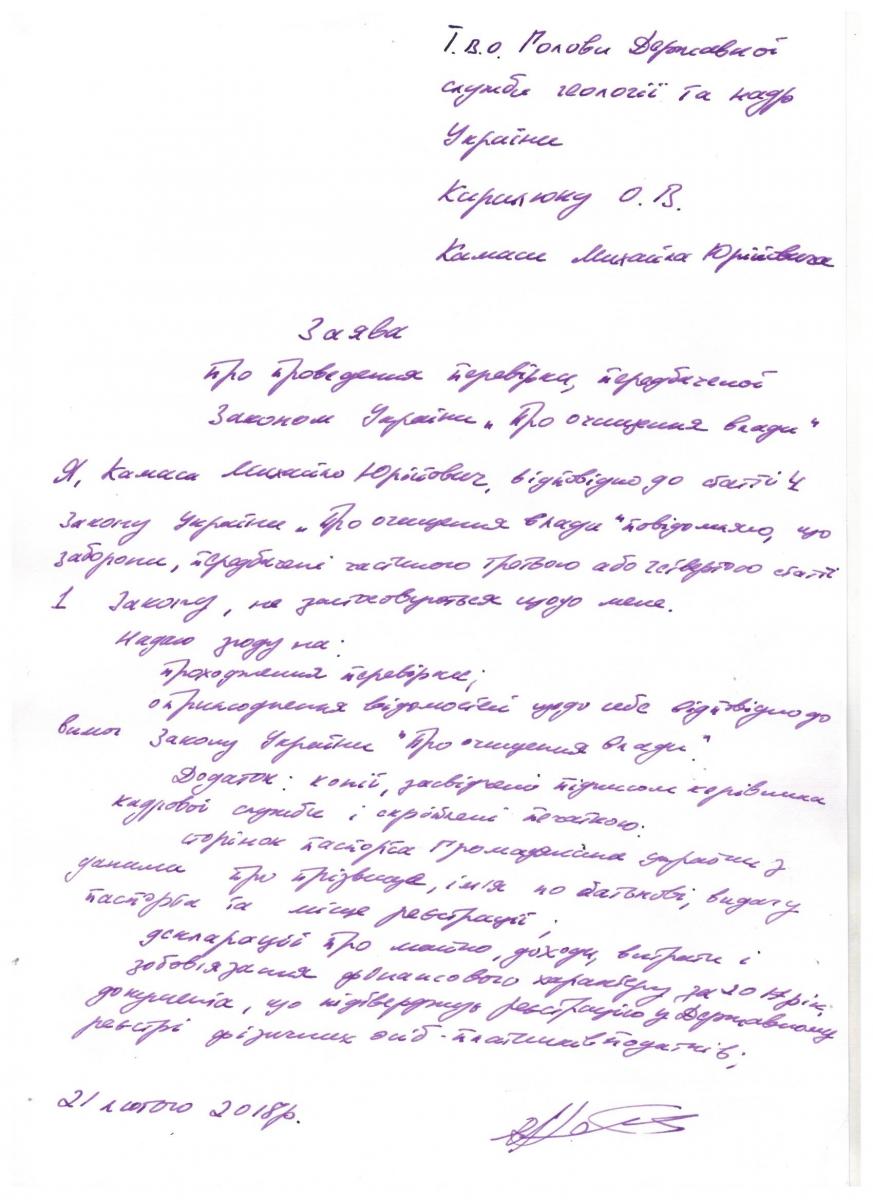 Т.в.о. Голови Державної
служби геології та надр
України
Кирилюку О.В.
Камаси Михайла Юрійовича
Заява
про проведення перевірки, передбаченої
Законом України „Про очищення влади"
Я, Камаси Михайло Юрійович, відповідно до статті 4
Закону України „Про очищення влади" повідомляю, що
заборони, передбачені частиною третьою або четвертою статті
1 Закону, не застосовуються щодо мене.
Надаю згоду на:
проходження перевірки;
оприлюднення відомостей щодо себе відповідно до
вимог Закону України "Про очищення влади".
Додаток: копії, засвідчені підписом керівника
кадрової служби і скріплені печаткою:
сторінок паспорта Громадянина України з
даними про прізвище, ім'я по батькові, видачу
паспорта та місце реєстрації;
декларації про майно, доходи, витрати і
зобов'язання фінансового характеру за 2017 рік;
документа, що підтверджує реєстрацію у Державному
реєстрі фізичних осіб-платників податків;
21 лютого 2018р.